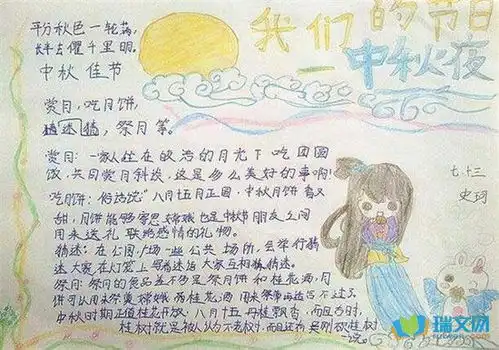 我们的节日
—中秋夜
平分秋色一轮满,
长伴云衢千里明。
中秋佳节
赏月,吃月饼,
猜迷猜,祭月等。
赏月:一家人坐在皎洁的月光下吃团圆
饭,共同赏月,是多么美好的事啊!
吃月饼:俗话说"八月十五月正圆,中秋月饼香又
甜,月饼能够寄思嫦娥也是中秋节朋友之间
用来送礼联络感情的礼物。
猜迷:在公园、广场一些公共场所,会举行猜
迷大家在灯笼上写着迷语大家互相猜迷。
祭月:祭月的食品差不多是祭月饼和桂花酒,月
饼可以用来祭奠嫦娥,而桂花酒用来祭再适合不过了。
中秋时期正值桂花开放,八月十五丹桂飘香,而且当时,
桂树就是被认为不老树,而且还有吴刚砍桂树
一说。
七.十三
史珂
瑞文网